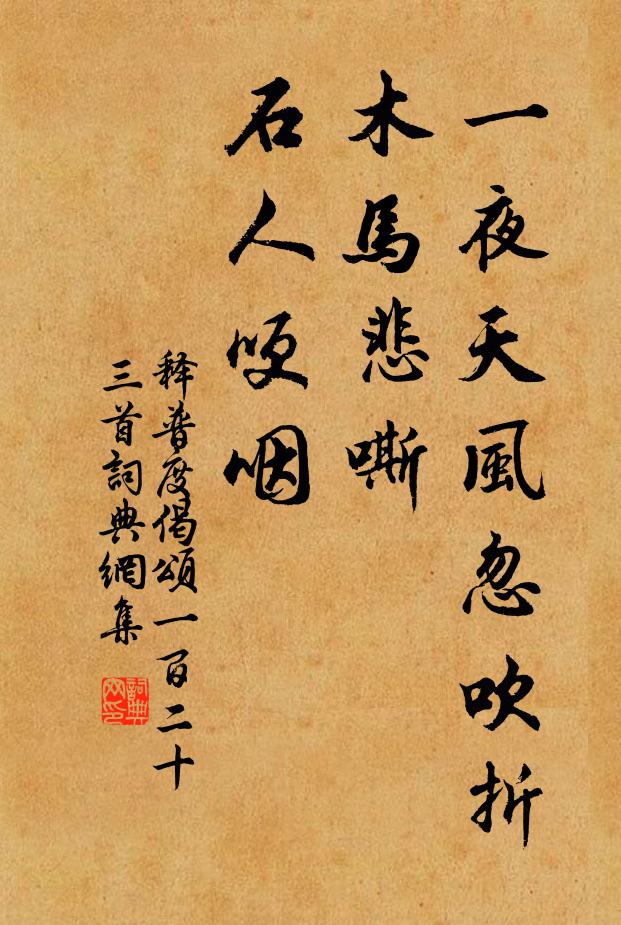 一夜天風忽吹折
木馬悲嘶
石人哽咽
释普度偈頌一百二十
三首詞典網集
詞典網印